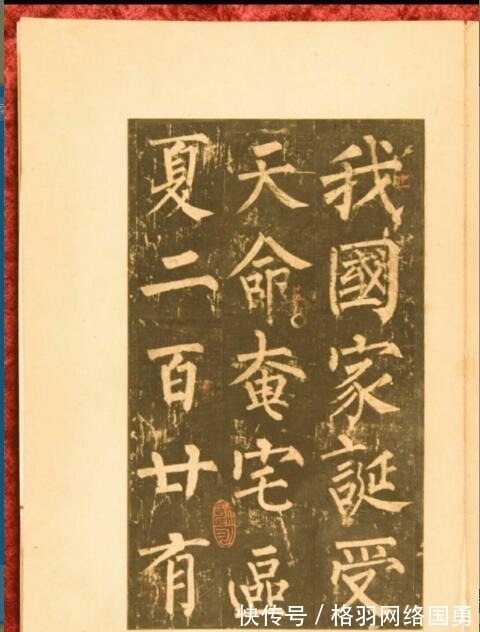 我國家誕受
天命奄宅區
夏二百廿有
快传号/格羽网络国勇